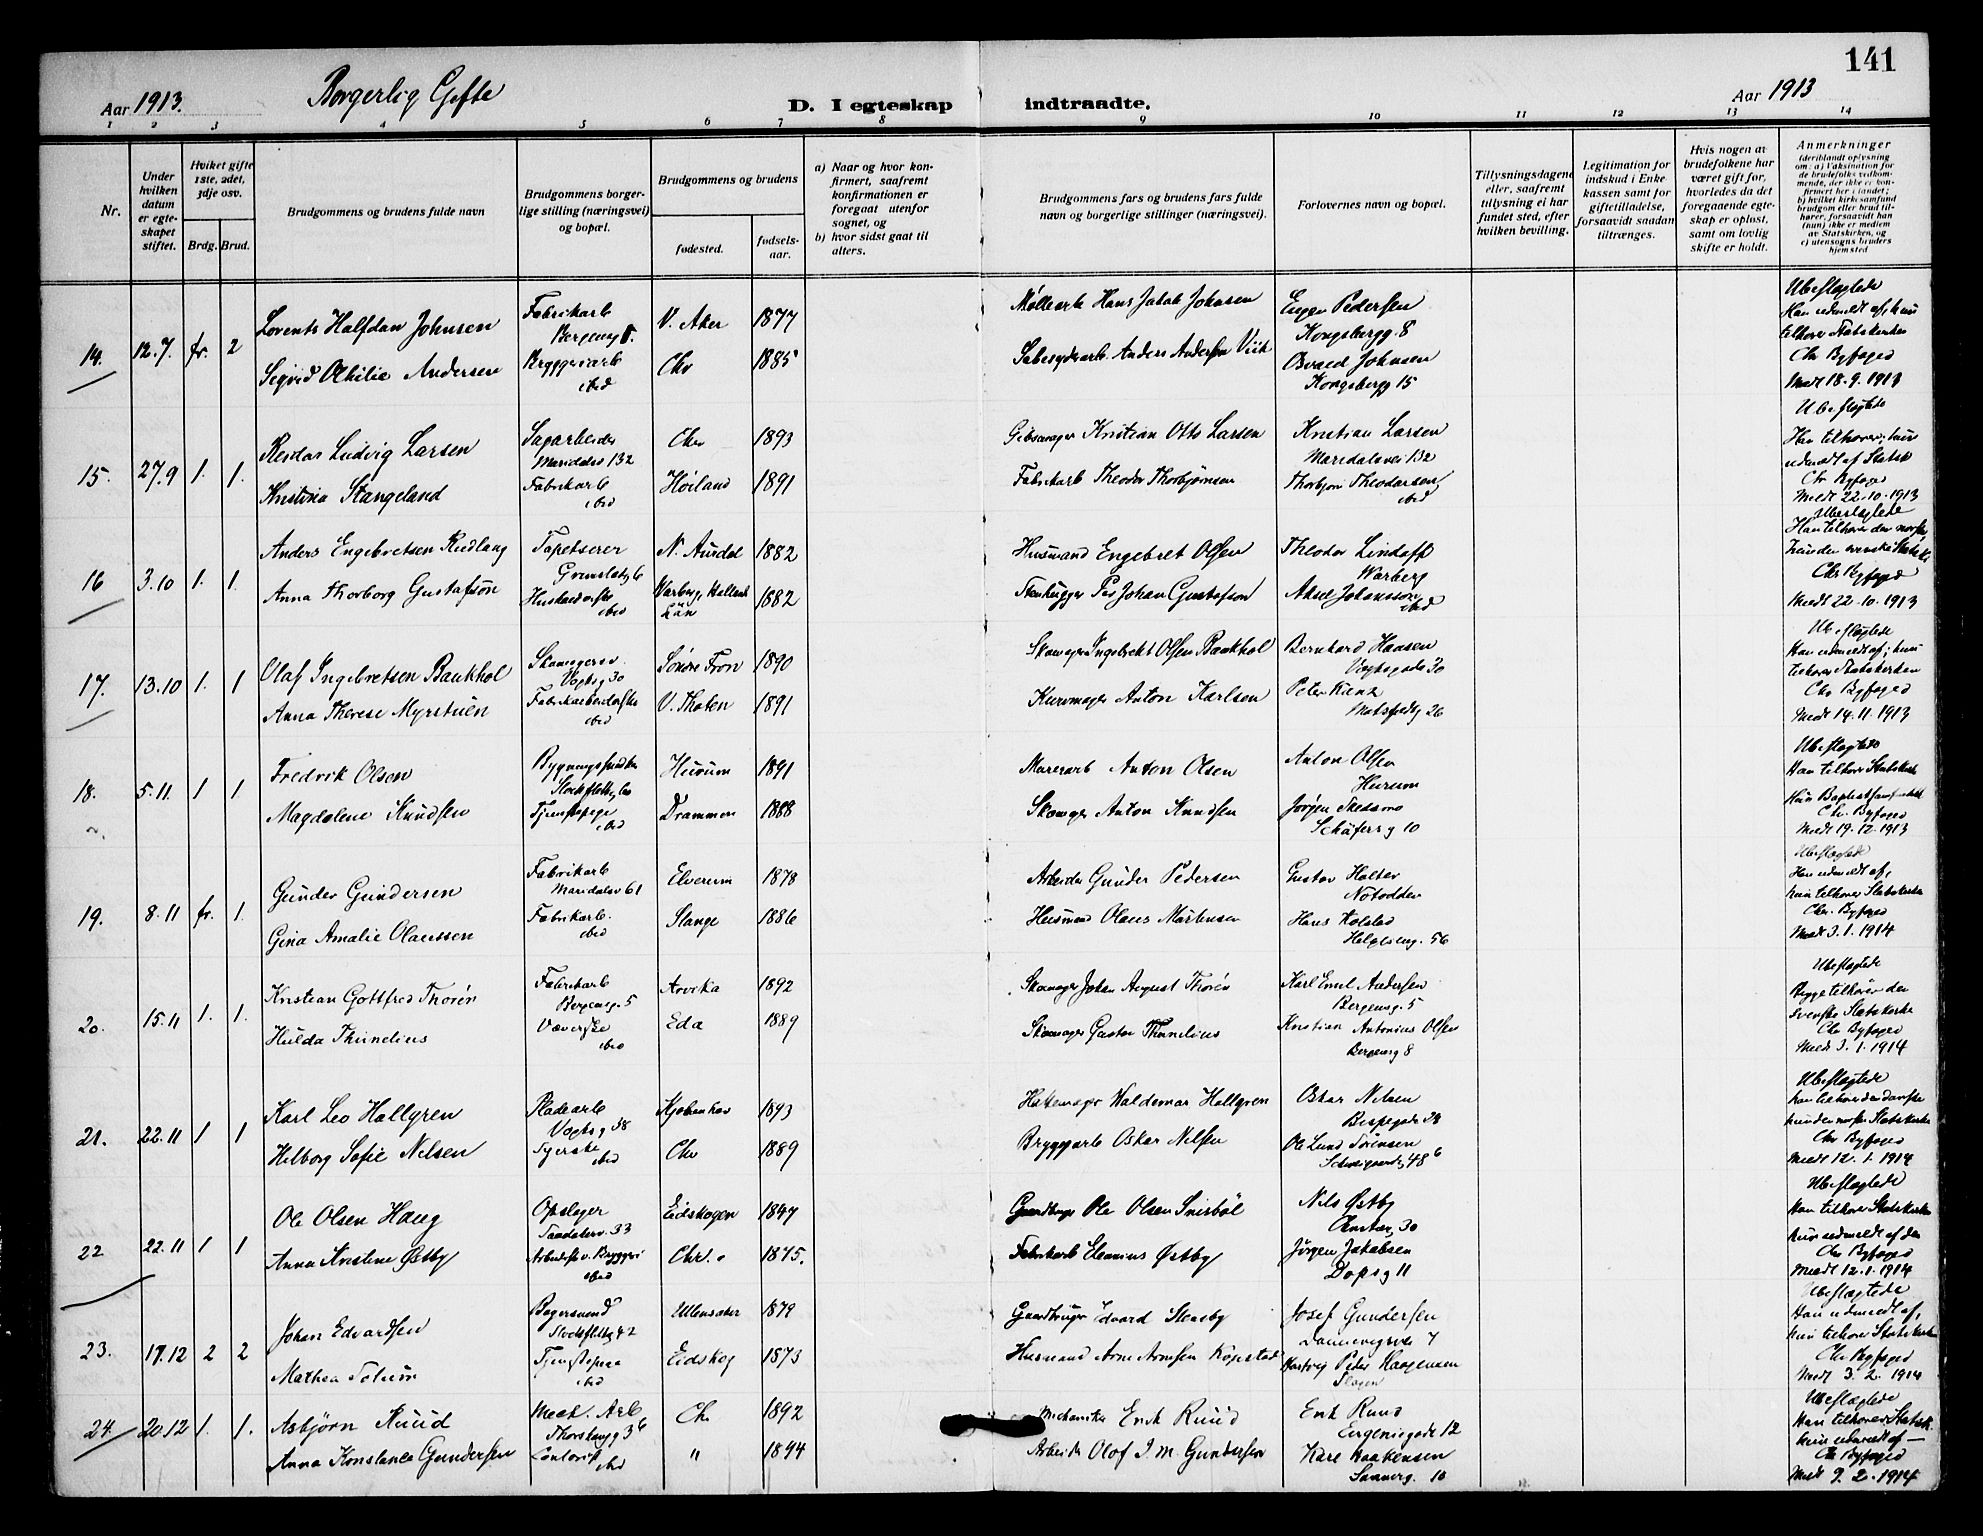 141
Aar 1913. Borgerlig Gifte D. I egteskap indtraadte. Aar 1913
1 2 3 4 5 6 7 8 9 10 11 12 13 14
Nr.
Under hvilken datum er egteskapet stiftet.
Hvilket gifte 1ste, 2det, 3dje osv.
Brdg. Brud.
Brudgommens og brudens fulde navn
Brudgommens borgerlige stilling (næringsvei) og bopæl.
Brudgommens og brudens
fødested. fødselsaar.
a) Naar og hvor konfirmert, saafremt konfirmationen er foregaat utenfor sognet, og
b) hvor sidst gaat til alters.
Brudgommens fars og brudens fars fulde navn og borgerlige stillinger (næringsvei).
Forlovernes navn og bopæl.
Tillysningsdagene eller, saafremt tillysning ei har fundet sted, efter hvilken bevilling.
Legitimation for indskud i Enkekassen samt for giftetilladelse, forsaavidt saadan tiltrænges.
Hvis nogen av brudefolkene har været gift før, hvorledes da det foregaaende egteskap er opløst, samt om lovlig skifte er holdt.
Anmerkninger
(deriblandt oplysning om: a) Vaksination for de brudefolks vedkommende, der ikke er konfirmert her i landet; b) hvilket kirkesamfund brudgom eller brud tilhører, forsaavidt han (hun) ikke er medlem av Statskirken, og c) utensogns bruders hjemsted
14. 12.7. fr. 2
Lorents Halfdan Johnsen Fabrikarb Bergensg 5. V. Aker 1877 Møllearb Hans Jakob Johnsen Eugen Pedersen Kongsbergg. 8
Sigrid Othilie Andersen Bryggeriarb ibid Chr 1885 Anders Andersen Viik Osvald Johnsen Kongsbergg 15
Ubeslegtede
Han udmeldt af, hun
tilhører Statskirken
Chr Byfoged
Medt 18.9.1913
15. 27.9 1. 1.
Reidar Ludvig Larsen Sagarbeider Maridalsv 132 Chr 1893 Kristian Otto Larsen Kristian Larsen Maridalsvei 132
Kristina Stangeland Fabrikarb ibid Høiland 1891 Fabrikarb Theodor Thorbjørnsen Thorbjørn Theodorsen ibid
Ubeslegtede
Han tilhører, hun
udmeldt af Statsk
Chr Byfoged
Medt 22.10.1913
16 3.10 1. 1.
Anders Engebretsen Tapetserer N. Aurdal 1882 Husmand Engebret Olsen Theodor Warberg
Anna Thorborg Gustafson ibid Varberg Hallands Län 1882 Stenhugger Per Johan Gustafson Aksel Johansson ibid
Ubeslegtede
Han tilhører den norske,
hun den svenske Statsk.
Chr Byfoged
Medt 22.10.1913
17. 13.10 1. 1
Olaf Ingebretsen Baukhol Vogtsg 30 Søndre Fron 1890 Skomager Ingebrekt Olsen Baukhol Bernhard Hansen Vogtsgade 30
Anna Therese Myrstuen ibid V. Thoten 1891 Kurvmager Anton Karlsen Peter 26
Ubeslegtede
Han udmeldt af, hun
tilhører Statskirken
Chr Byfoged
Medt 14.11.1913
18. 5.11. 1 1
Fredrik Olsen Hurum 1891 Murerarb Anton Olsen Anton Olsen Hurum
Magdalene Knudsen Tjenestepige ibid Drammen 1888 Skomager Anton Knudsen Jørgen Schäfersg 10
Ubeslegtede
Han tilhører Statskirk
Hun
Chr. Byfoged
Medt 19.12.1913
19. 8.11 fr. 1.
Gunder Gundersen Fabrikarb Maridalsv 61 Elverum 1878 Arbeider Gunder Pedersen Gustav Holter Notodden
Gina Amalie Olaussen Fabrikarb. ibid Stange 1886 Husmand Olaus Martinsen Hans Kolstad Helgesensg. 56
Ubeslegtede
Han udmeldt af,
hun tilhører Statskirke
Chr. Byfoged
Medt 3.1.1914
20. 15.11 1. 1.
Kristian Gottfred Thorén Fabrikarb Bergensg. 5 Arvika 1892 Skomager Johan August Thorén Karl Emil Andersen Bergensg. 5
Hulda Thunelius Væverske ibid Eda 1889 Skomager Gustav Thunelius Kristian Antonius Olsen Bergensg 8
Ubeslegtede
Begge tilhører den
svenske Statskirke
Chr Byfoged
Medt 3.1.1914
21. 22.11 1 1
Karl Leo Hallgren Pladearb Vogtsg 38 Kjøbenhav 1893 Hattemager Valdemar Hallgren Oskar Nilsen Bispegade
Hilborg Sofie Nelsen Syerske ibid Chr 1889 Bryggarb Oskar Nilsen Ole Lund Sørensen Schweigaardsg 48 6
Ubeslegtede
han tilhører den danske
hun den norske Statskirke
Chr Byfoged
Medt 12.1.1914
22 22.11 1 1
Ole Olsen Haug Opslager Sandakerv. 33 Eidskogen 1847 Gaardbruger Ole Olsen Nils Østby 30
Anna Kristine Østby Arbeiderske v. Bryggeri ibid Chr. 1875. Fabrikarb Østby Jørgen Jakobsen Dopsg 11
Ubeslegtede
Han tilhører Statskirken
hun udmeldt af den
Chr Byfoged
Medt 12.1.1914
23. 17.12 2 2
Johan Edvardsen Bagersvend Stockfletsg 42 Ullensaker 1879 Gaardbruger Edvard Josef Gundersen 7
Mathea Solum Tjenestepige ibid Eidskog 1873 Husmand Arne Arnesen Peder Haagensen
Ubeslegtede
Han udmeldt af,
hun tilhører Statskirken
Chr Byfoged
Medt 3.2.1914
24. 20.12 1. 1.
Asbjørn Ruud Mech. Arb 36 Ch. 1892 Mechaniker Erik Ruud Erik Ruud Eugeniegade 12
Anna Konstance Gundersen Contorist ibid " 1894 Arbeider Olof I. M. Gundersen Kare Haakensen 10
Ubeslegtede
Han tilhører Statsk.
hun udmeldt af
Chr Byfoged
Medt 9.2.1914